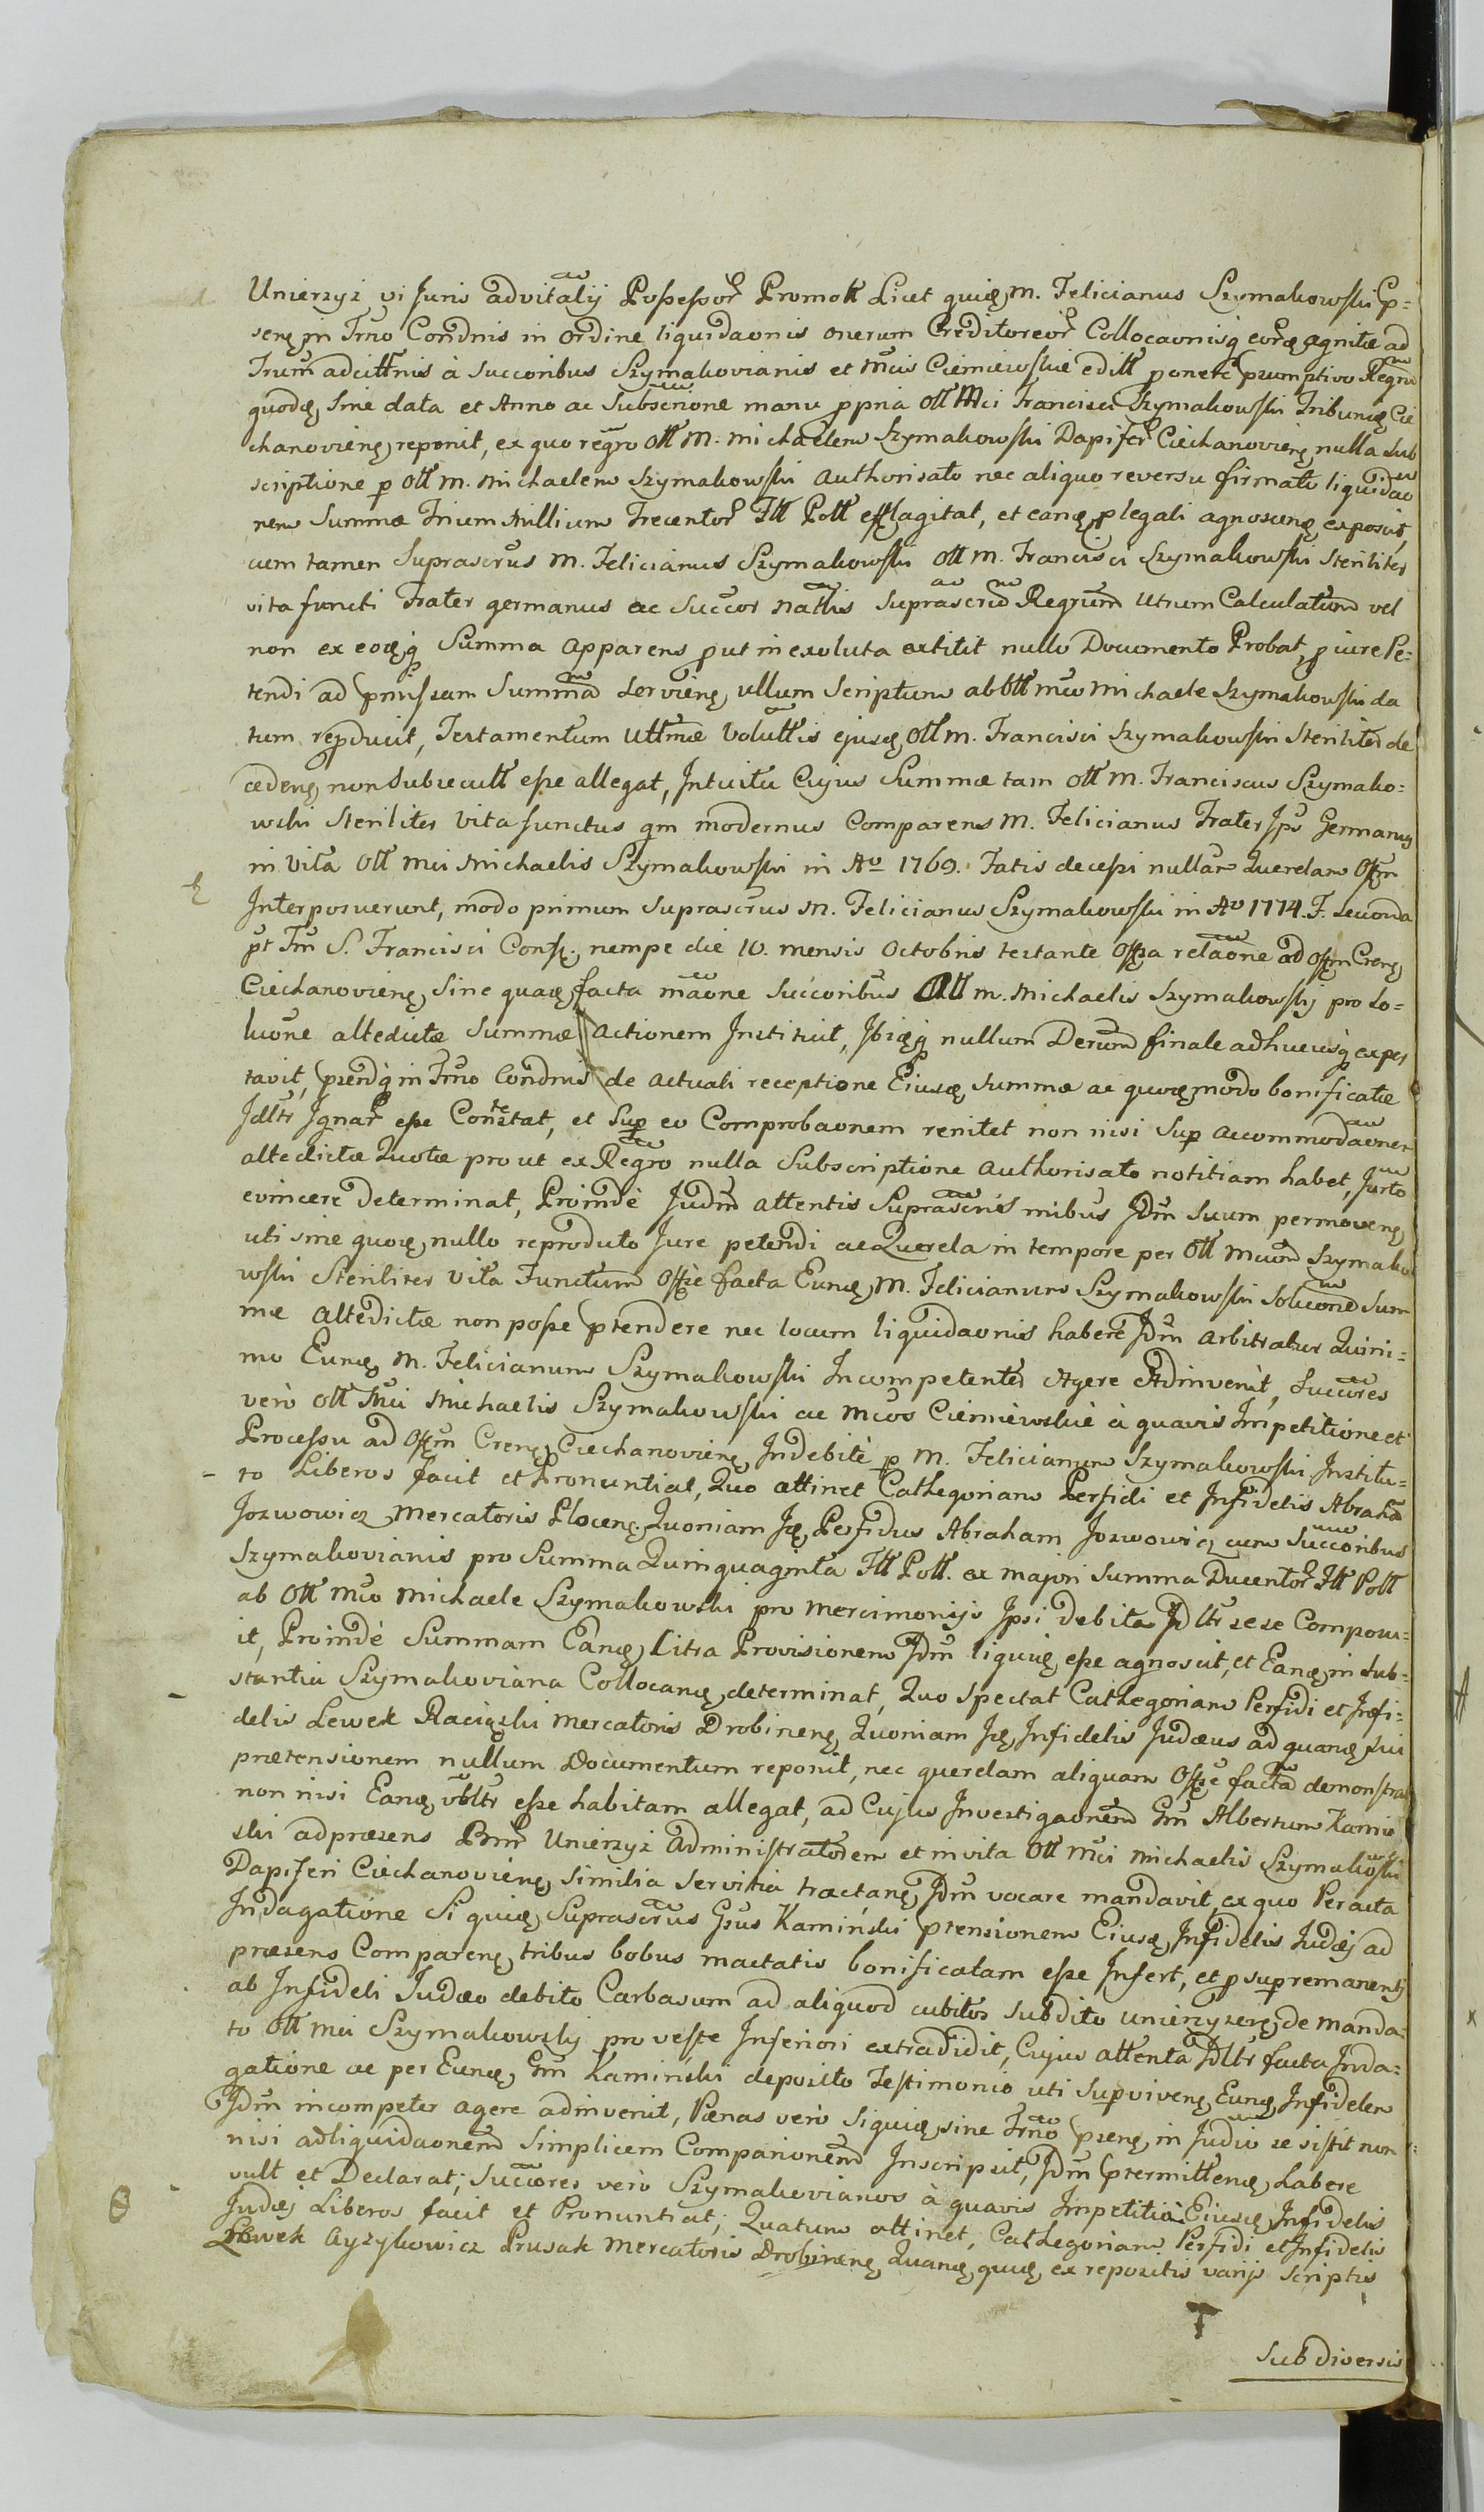 Unierzyż vi Juris advitalij Possessor Promott Licet quię m. Felicianus Szymakowski p=
senę in Trno Condnis in ordine liquidaonis onerum Creditoreor Collocaonisq eorę agnitæ ad
Trum adcittnis à Succoribus Szymakovianis et mcis Ciemiewskie editt ponere psumptivo Regru
quodę sine data et Anno ac Subscrione manu ppria Ott Mci Francisci Szymakowski Tribunię Cie
chanovienę reponit, ex quo regro Ott M. michaelem Szymakowski Dapifer Ciechanovienę nulla sub
scriptione p Ott m. Michaelem Szymakowski Authorisato nec aliquo reversu firmato liquidao
nem Summæ Trium Millium Trecentor Ftt Pott efflagitat, et eanę p legali agnoscenę exposcit,
cum tamen Suprascrus M. Felicianus Szymakowski Ott m. Francisci Szymakowski Steriliter
vita functi Frater germanus ac Succor nattis Suprascrū Regrum utrum Calculatum vel
non ex eoęq Summa apparens put inexoluta extitit nullo Documento Probat, p iure Pe=
tendi ad pmissam Summā servienę ullum Scriptum ab Ott mco Michaele Szymakowski da
tum reproducit, Testamentum Uttmæ Voluttis ejusę Ott m. Francisci Szymakowski Steriliter de
cedenę non subsecutt esse allegat, Intuitu Cujus Summæ tam Ott m. Franciscus Szymako=
wski Steriliter Vita functus qm modernus Comparens M. Felicianus Frater Jps Germanus
in Vita Ott mci Michaelis Szymakowski in Ao 1769. Fatis decessi nullam Querelam Offm
Interposuerunt, modo primum Suprascrus M. Felicianus Szymakowski in Ao 1774. F. secunda
pt Fm S. Francisci Conf. nempe die 10. mensis Octobris testante Offsa relaone ad offm Crenę
Ciechanovienę, Sine quaę facta maone Succoribus Ott m. Michaelis Szymakowskij pro so=
luone altedictæ Summæ Actionem Instituit, Jbięq nullum Decrum finale adhucusq expec
tavit, psendq in Trno Condnis de actuali receptione Ejusę Summæ ac quoęmodo bonificatæ
Jdltr Jgnar esse Constat, et Sup eo Comprobaonem renitet non nisi Sup accommodaonem
altedictæ Quotæ pro ut ex Regro nulla Subscriptione authorisato notitiam habet, Jurto
evincere determinat, Proindè Judm attentis Suprascris mibus Jdm suum permovenę
uti sine quoę nullo reproducto Jure petendi ac Querela in tempore per Ott Mcum Szymako
wski Steriliter Vita Functum Offse facta Eunę, M. Felicianum Szymakowski Soluone Sum
mæ Altedictæ non posse ptendere nec locum liquidaonis habere Jdm arbitratur Quini=
mo Eunę M. Felicianum Szymakowski Incompetenter Agere Adinvenit, Succores
verò Ott Mci Michaelis Szymakowski ac mcos Ciemiewskie à quavis Impetitione et
Processu ad Offm Crenę Ciechanovienę Indebitè p M. Felicianum Szymakowski Institu=
to Liberos facit et Pronuntiat, Quo attinet Cathegoriam Perfidi et Infidelis Abrahā
Jozwowicz Mercatoris Plocenę. Quoniam Ję Perfidus Abraham Jozwowicz cum Succoribus
Szymakovianis pro Summa Quinquaginta Ftt Pott. ex majori Summa Ducentor Ftt Pott
ab Ott Mco Michaele Szymakowski pro Mercimonijs Jpsi debita Jdltr sese Composu=
it, Proindè Summam Eanę Citra Provisionem Jdm liquię esse agnoscit, et Eanę in Sub=
stantia Szymakoviana Collocanę determinat, Quo spectat Cathegoriam Perfidi et Infi=
delis Lewek Raciąski Mercatoris Drobinenę, Quoniam Ję Infidelis Judæus ad quanę sui
prætensionem nullum Documentum reponit, nec querelam aliquam Offse factā demonstrat
non nisi Eanę vbltr esse habitam allegat, ad Cujus Investigaonem Gm Albertum Kamiń
ski ad præsens Bnr Unierzyż Administratorem et in vita Ott Mci Michaelis Szymakowski
Dapiferi Ciechanovienę Similia Servitia tractanę Jdm vocare mandavit, ex quo Peracta
Indagatione Si quię Suprascrus Gsus Kamiński ptensionem Eiusę Infidelis Judæj ad
præsens Comparenę tribus bobus mactatis bonificatam esse Infert, et p supremanenti
ab Infideli Judæo debito Carbasum ad aliquod cubitos subdito Unierzyzenę de Manda=
to Ott Mci Szymakowskij pro veste Inferiori extradidit, Cujus attenta Jdltr facta Inda=
gatione ac per Eunę Gm Kamiński deposito Testimonio uti Supvivenę, Eunę Infidelem
Jdm incompeter agere adinvenit, Pænas verò Siquię sine Trno psenę in Judio se sistit non
nisi ad liquidaonem Simplicem Comparionem Inscripsit, Jdm ptermittenę habere
vult et Declarat; Succores verò Szymakovianos à quavis Impetitio Eiusę Infidelis
Judæj Liberos facit et Pronuntiat; Quatum attinet, Cathegoriam Perfidi et Infidelis
Lewek Ayzykowicz Prusak Mercatoris Drobinenę, Quanę quię ex repositis varijs Scriptis
Sub diversis